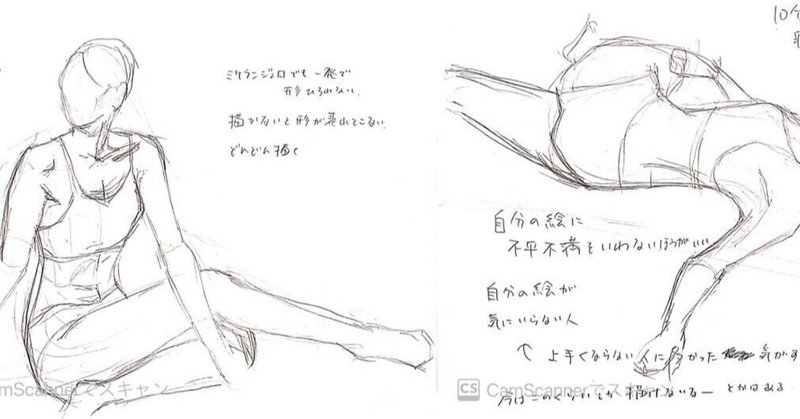 ミケランジェロでも一発で
形とれない
描かないと形が表れてこない
どんどん描く
10分
自分の絵に
不平不満をいわないほうがいい
自分の絵が
気にいらない人
↑ 上手くならない人に多かった 気がす
今はこのくらいしか描けないなー とかはある
CamScannerでスキャン
CS CamScannerでスキャン